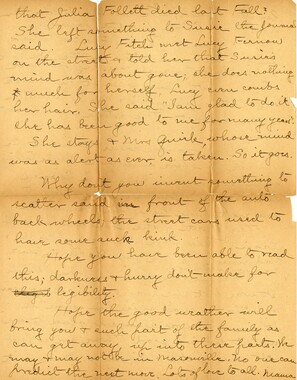 that Julia Follett died last Fall?
She left something to Susie the journal
said. Lucy Fitch met Lucy Fernow
on the street & told her that Susie's
mind was about gone; she does nothing
much for herself. Lucy even combs
her hair. She said "I am glad to do it
she has been good to me for many years".
She stays & Mrs Quirk, whose mind
was as alert as ever, is taken. So it goes.
Why don't you invent something to
scatter sand in front of the auto
back wheels; the street cars used to
have some such kink.
Hope you have been able to read
this; darkness & hurry don't make for
legibility.
Hope the good weather will
bring you & such part of the family as
can get away up into these parts. We
may & may not be in
No one can
predict the next move. Lots of love to all. Mama